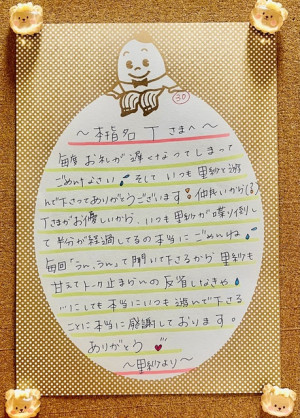 30
～本指名 Tさまへ～
毎度 お礼が遅くなってしまって
ごめんなさい そして いつも 里紗と遊
んで下さってありがとうございます! 仲良いから(る)
Tさまがお優しいから、いつも里紗が喋り倒し
て半分が経過してるの本当にごめんね
毎回「うん、うん」て聞いて下さるから 里紗も
甘えてトーク止まらんの 反省しなきゃ
にしても本当にいつも遊んで下さる
ことに本当に感謝しております。
ありがとう
～里紗より～